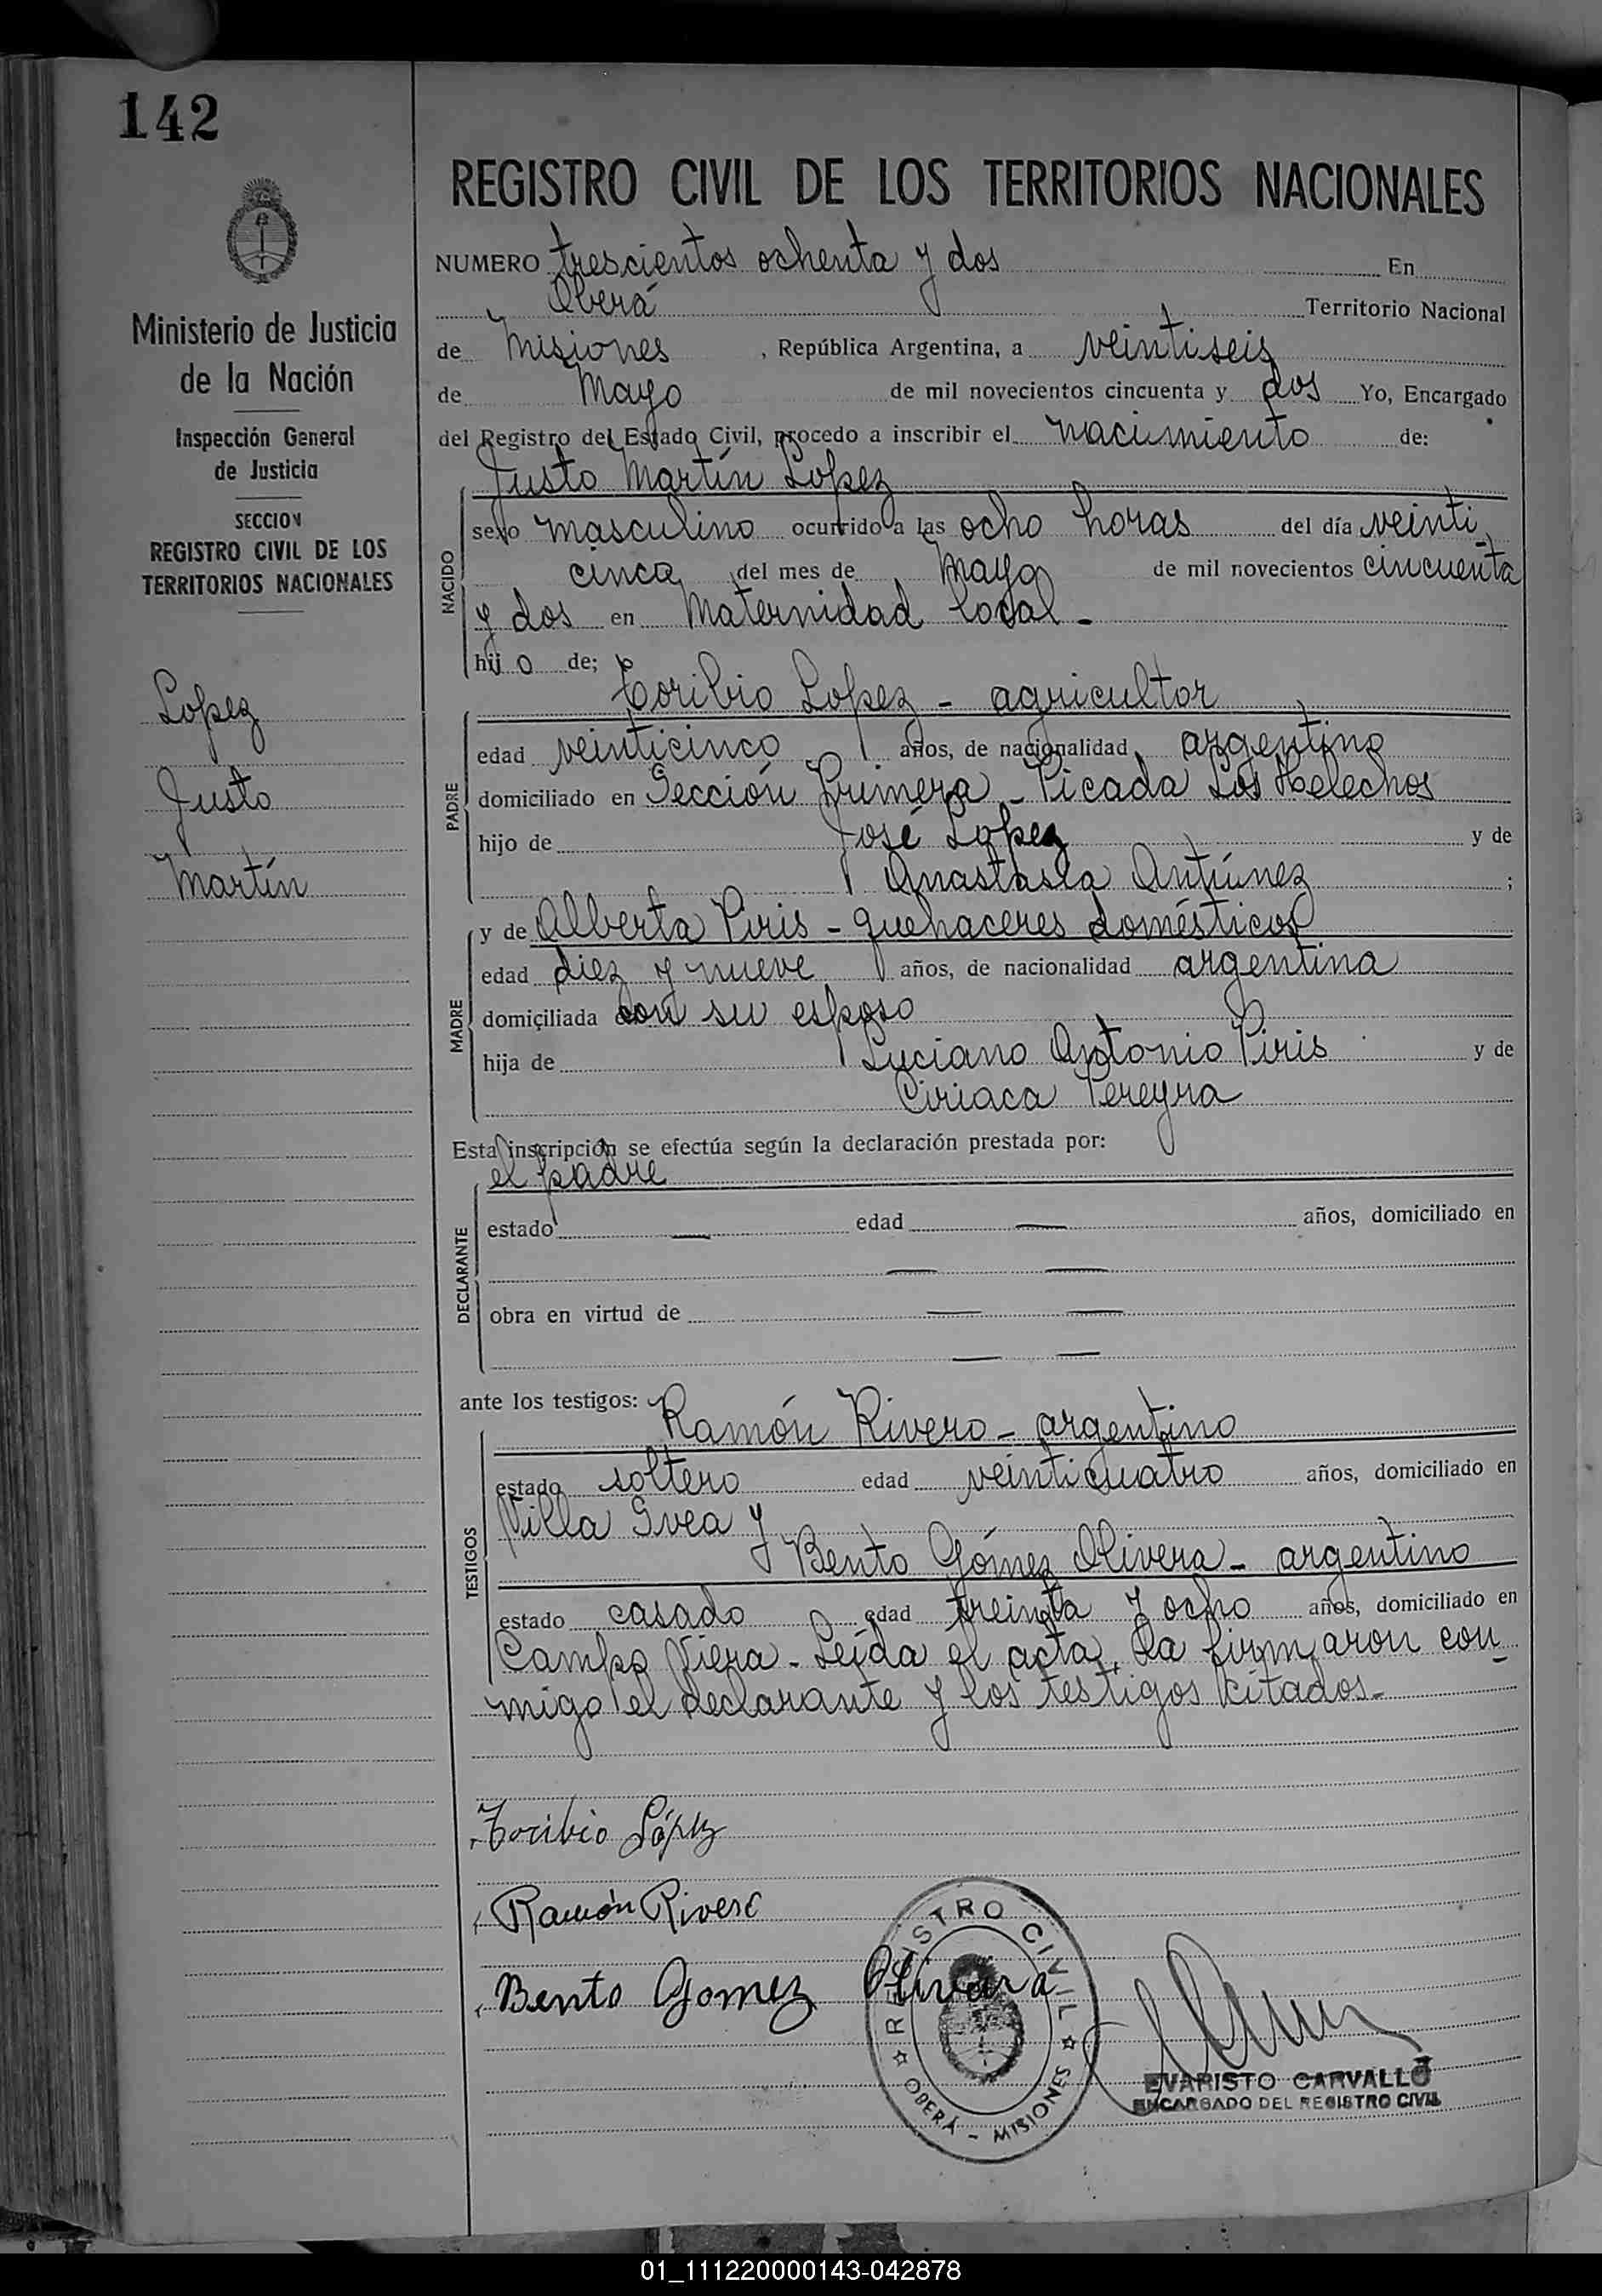 142
REGISTRO CIVIL DE LOS TERRITORIOS NACIONALES
Ministerio de Justicia
de la Nación
Inspección General
de Justicia
SECCION
REGISTRO CIVIL DE LOS
TERRITORIOS NACIONALES
Lopez
Justo
Martín
NUMERO trescientos ochenta y dos En
Oberá Territorio Nacional
de Misiones , República Argentina, a veintiseis
de Mayo de mil novecientos cincuenta y dos Yo, Encargado
del Registro del Estado Civil, procedo a inscribir el nacimiento de:
Justo Martín Lopez
NACIDO
sexo masculino ocurrido a las ocho horas del día veinti
cinco del mes de Mayo de mil novecientos cincuenta
y dos en Maternidad local -
hijo de;
Toribio Lopez - agricultor
PADRE
edad veinticinco años, de nacionalidad argentino
domiciliado en Sección Primera - Picada Los Helechos
hijo de José Lopez y de
Anastasia Antúnez ;
y de Alberta Piris - quehaceres domésticos
MADRE
edad diez y nueve años, de nacionalidad argentina
domiciliada con su esposo
hija de Luciano Antonio Piris y de
Ciriaca Pereyra
Esta inscripción se efectúa según la declaración prestada por:
el padre
DECLARANTE
estado — edad — años, domiciliado en
— —
obra en virtud de — —
— —
ante los testigos: Ramón Rivero - argentino
TESTIGOS
estado soltero edad veinticuatro años, domiciliado en
Villa Svea y
Bento Gómez Olivera - argentino
estado casado edad treinta y ocho años, domiciliado en
Campo Viera - Leída el acta, la firmaron con
migo el declarante y los testigos citados.-
Toribio López
Ramón Rivero
Bento Gomez Olivara
REGISTRO CIVIL
OBERÁ - MISIONES
EVARISTO CARVALLO
ENCARGADO DEL REGISTRO CIVIL
01_111220000143-042878